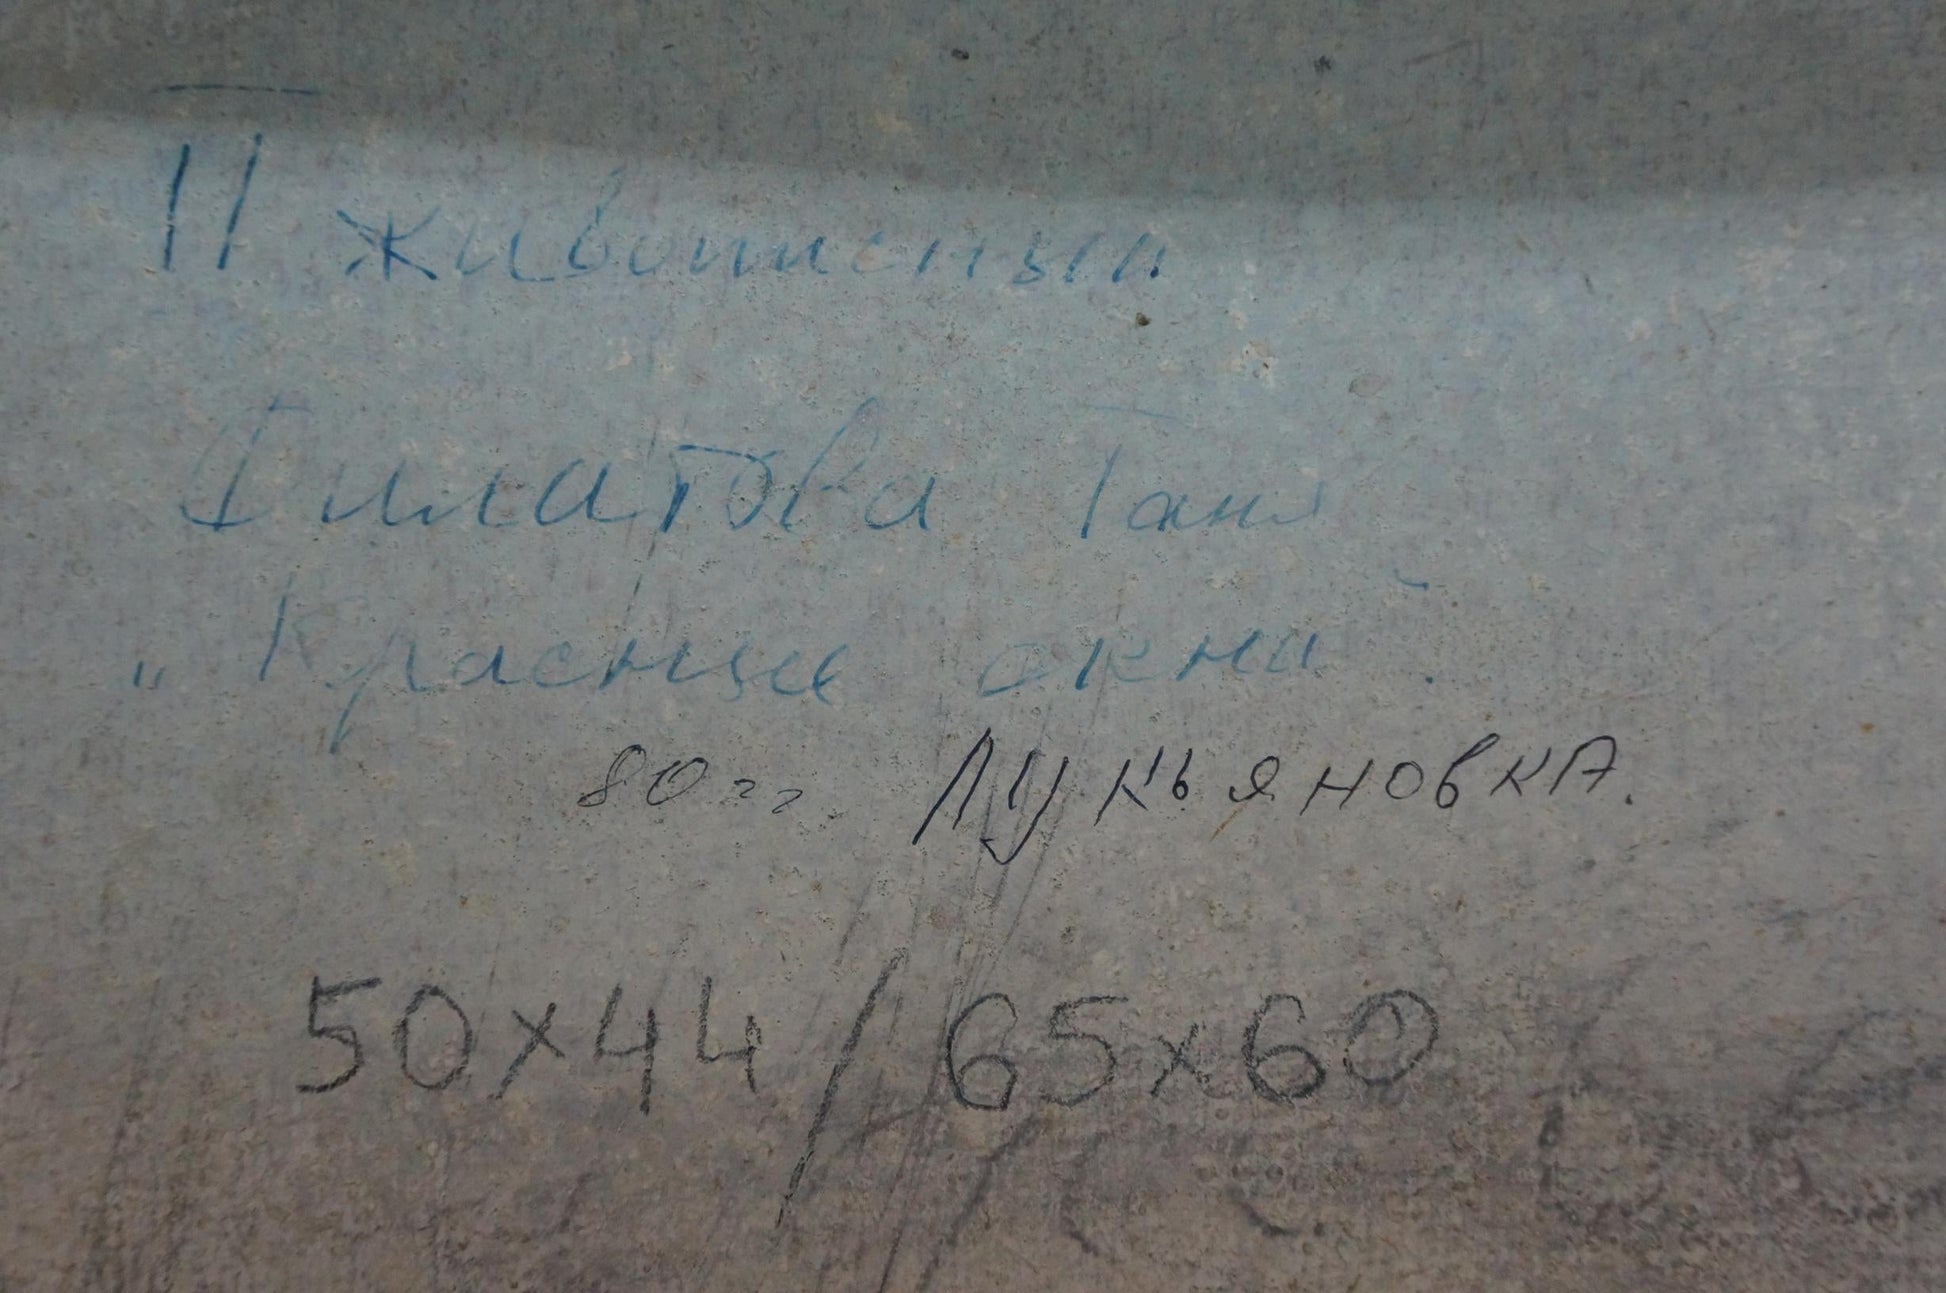 II живописный
Филатова Таня
„Красные окна".
80гг. Лукьяновка.
50х44/65х60